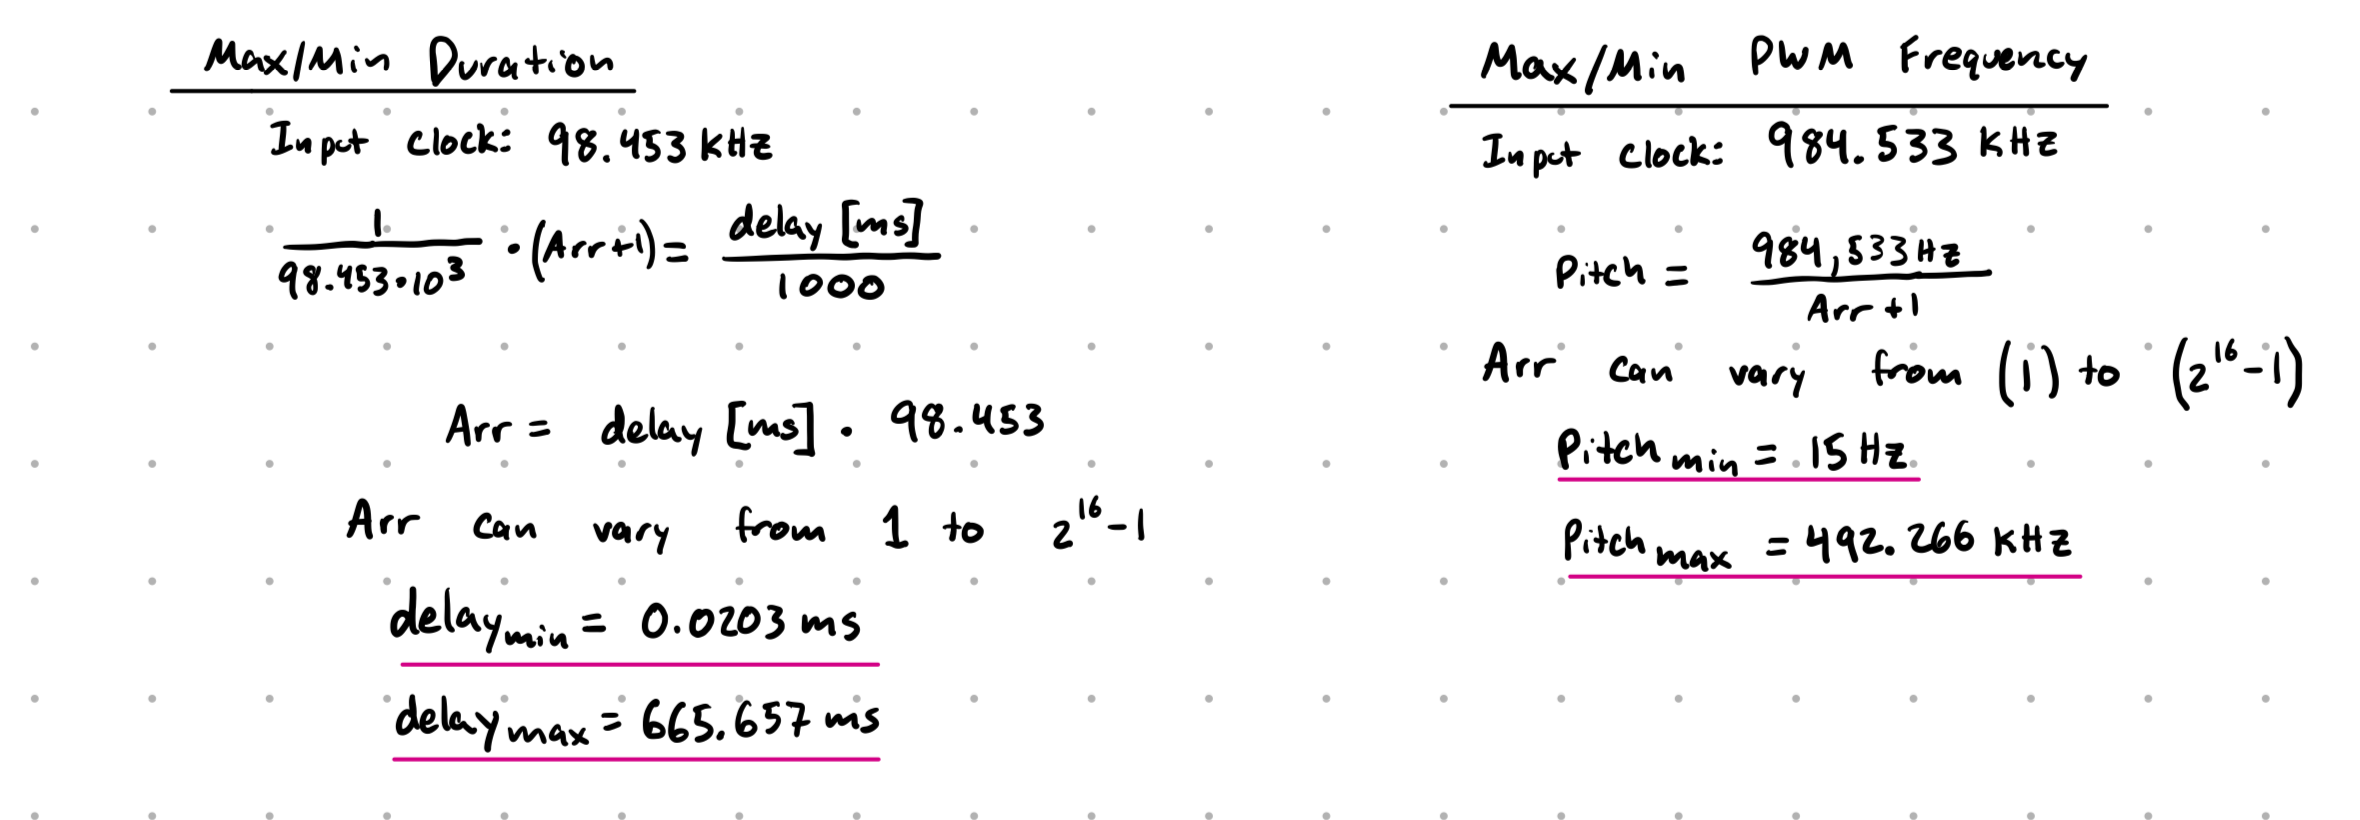 Max/Min Duration
Input clock: 98.453 KHz
1 / 98.453·10³ · (Arr+1) = delay [ms] / 1000
Arr = delay [ms] · 98.453
Arr can vary from 1 to 2¹⁶-1
delay min = 0.0203 ms
delay max = 665.657 ms
Max/Min PWM Frequency
Input clock: 984.533 KHz
Pitch = 984,533 Hz / Arr +1
Arr can vary from (1) to (2¹⁶-1)
Pitch min = 15 Hz
Pitch max = 492.266 KHz